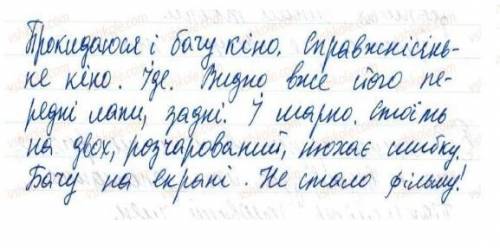 Прокидаюся і бачу кіно. Справжнісінь-
ке кіно. Їде. Видно вже його пе-
редні лапи, задні. І марно. Стоїть
на двох, розчарований, нюхає шибку.
Бачу на екрані. Не стало фільму!